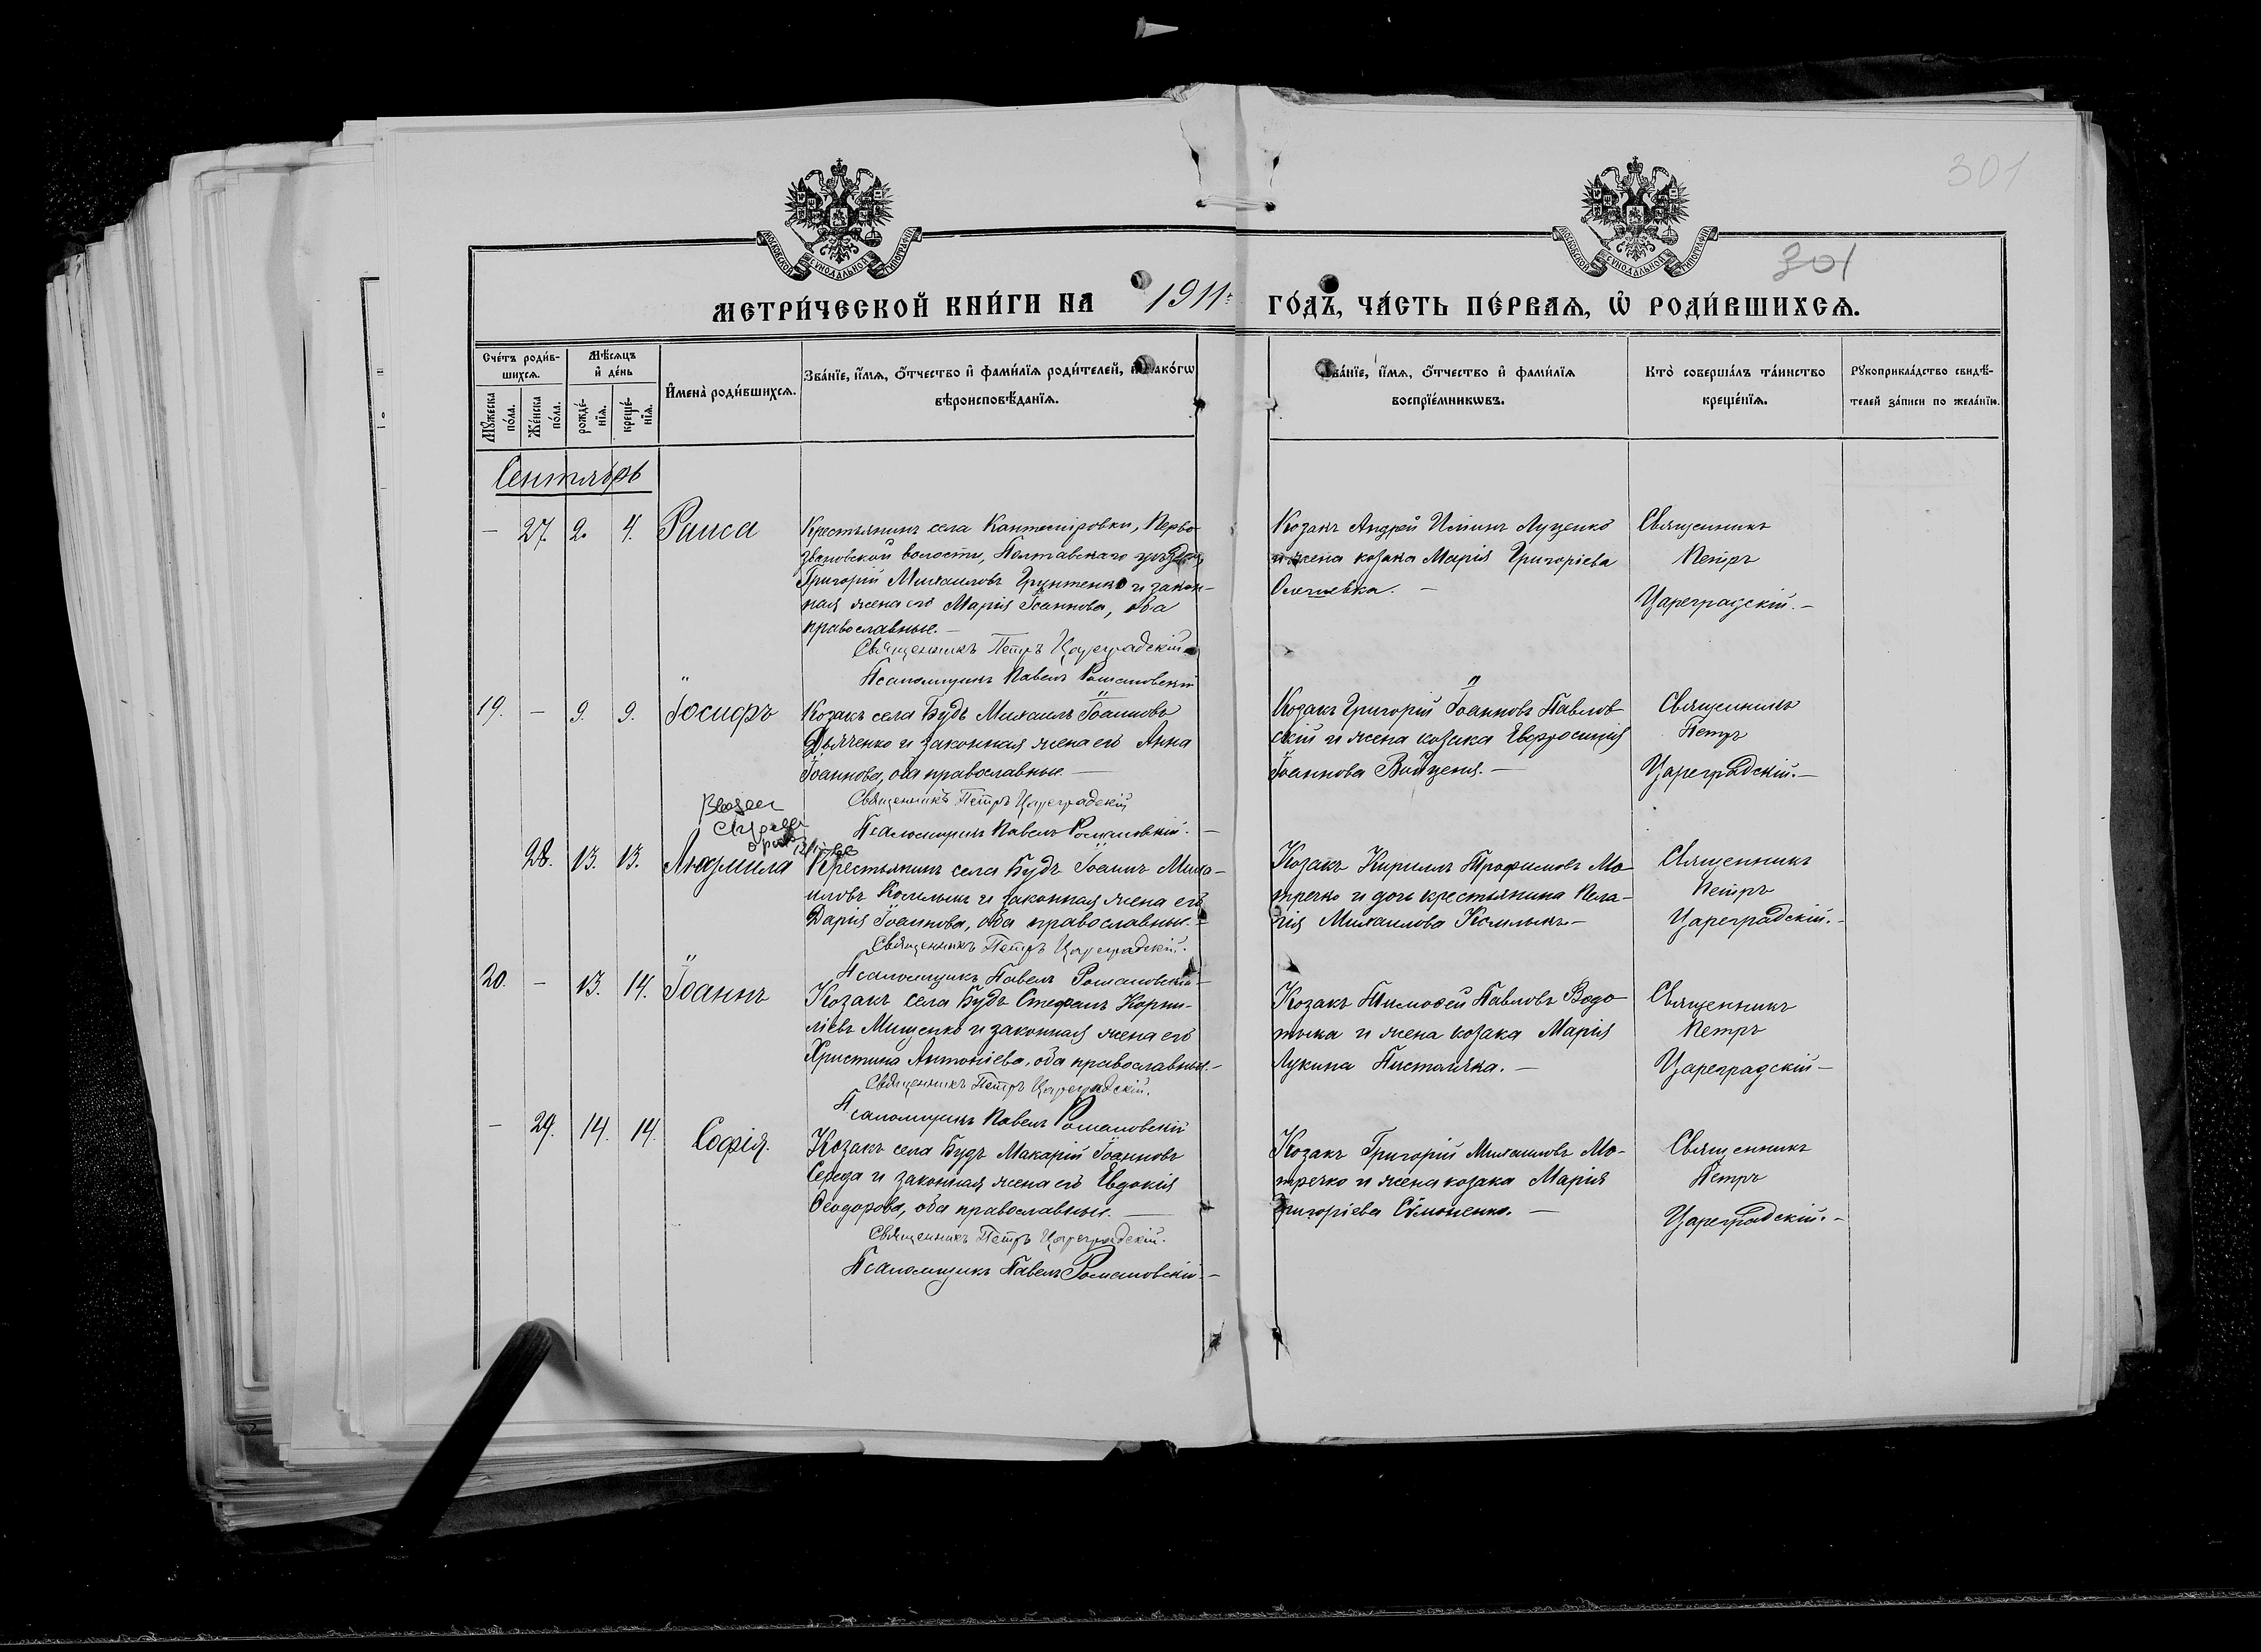 301
301
МОСКОВСКОЙ СѴНОДАЛЬНОЙ ТИПОГРАФІИ
МОСКОВСКОЙ СѴНОДАЛЬНОЙ ТИПОГРАФІИ
МЕТРИ́ЧЕСКОЙ КНИ́ГИ НА 1911 ГО́ДЪ, ЧА́СТЬ ПЕ́РВАѦ, Ѡ҆ РОДИ́ВШИХСѦ.
Сче́тъ роди́в-
шихсѧ.
Мꙋ́жеска по́ла.
Же́нска по́ла.
Мѣ́сѧцъ и҆ де́нь
рожде́-
нїѧ.
креще́-
нїѧ.
И҆мена̀ роди́вшихсѧ.
Зва́нїе, и҆́мѧ, ѻ҆́тчество и҆ фами́лїѧ роди́телей, и҆ како́гѡ
вѣроисповѣ́данїѧ.
Зва́нїе, и҆́мѧ, ѻ҆́тчество и҆ фами́лїѧ
воспрїе́мникѡвъ.
Кто̀ соверша́лъ та́инство
креще́нїѧ.
Рꙋкоприкла́дство свидѣ́-
телей за́писи по жела́нїю.
Сентябрь
— 27. 2. 4. Раиса
Крестьянинъ села Кантемировки, Перво-
звановской волости, Полтавскаго уѣзда
Григорій Михаиловъ Грунтенко и закон-
ная жена его Марія Іоаннова, оба
православные. —
Священникъ Петръ Цареградскій
Псаломщикъ Павелъ Романовскій
Козакъ Андрей Луценко
и жена козака Марія Григоріева
Священникъ
Петръ
Цареградскій. —
19. — 9. 9. Іосифъ
Козакъ села Будъ Михаилъ Іоанновъ
Дьяченко и законная жена его Анна
Іоаннова, оба православные. —
Священникъ Петръ Цареградскій
Псаломщикъ Павелъ Романовскій. —
Козакъ Григорій Іоанновъ Павлов
скій и жена козака Евфросинія
Іоаннова Войценя. —
Священникъ
Петръ
Цареградскій. —
28. 13. 13. Людмила
Крестьянинъ села Будъ Іоаннъ Миха-
иловъ Комлыкъ и законная жена его
Дарія Іоаннова, оба православные. —
Священникъ Петръ Цареградскій.
Псаломщикъ Павелъ Романовскій —
Козакъ Кириллъ Трофимовъ Мо-
тречко и дочь крестьянина Пела-
гія Михаилова Комлыкъ —
Священникъ
Петръ
Цареградскій. —
20. — 13. 14. Іоаннъ
Козакъ села Будъ Стефанъ Корни-
ліевъ Мищенко и законная жена его
Христина Антоніева, оба православные. —
Священникъ Петръ Цареградскій.
Псаломщикъ Павелъ Романовскій
Козакъ Тимоѳей Павловъ Водо-
тыка и жена козака Марія
Лукина —
Священникъ
Петръ
Цареградскій —
— 29. 14. 14. Софія.
Козакъ села Будъ Макарій Іоанновъ
Середа и законная жена его Евдокія
Ѳеодорова, оба православные. —
Священникъ Петръ Цареградскій.
Псаломщикъ Павелъ Романовскій. —
Козакъ Григорій Михаиловъ Мо-
тречко и жена козака Марія
Григоріева Симоненко. —
Священникъ
Петръ
Цареградскій. —